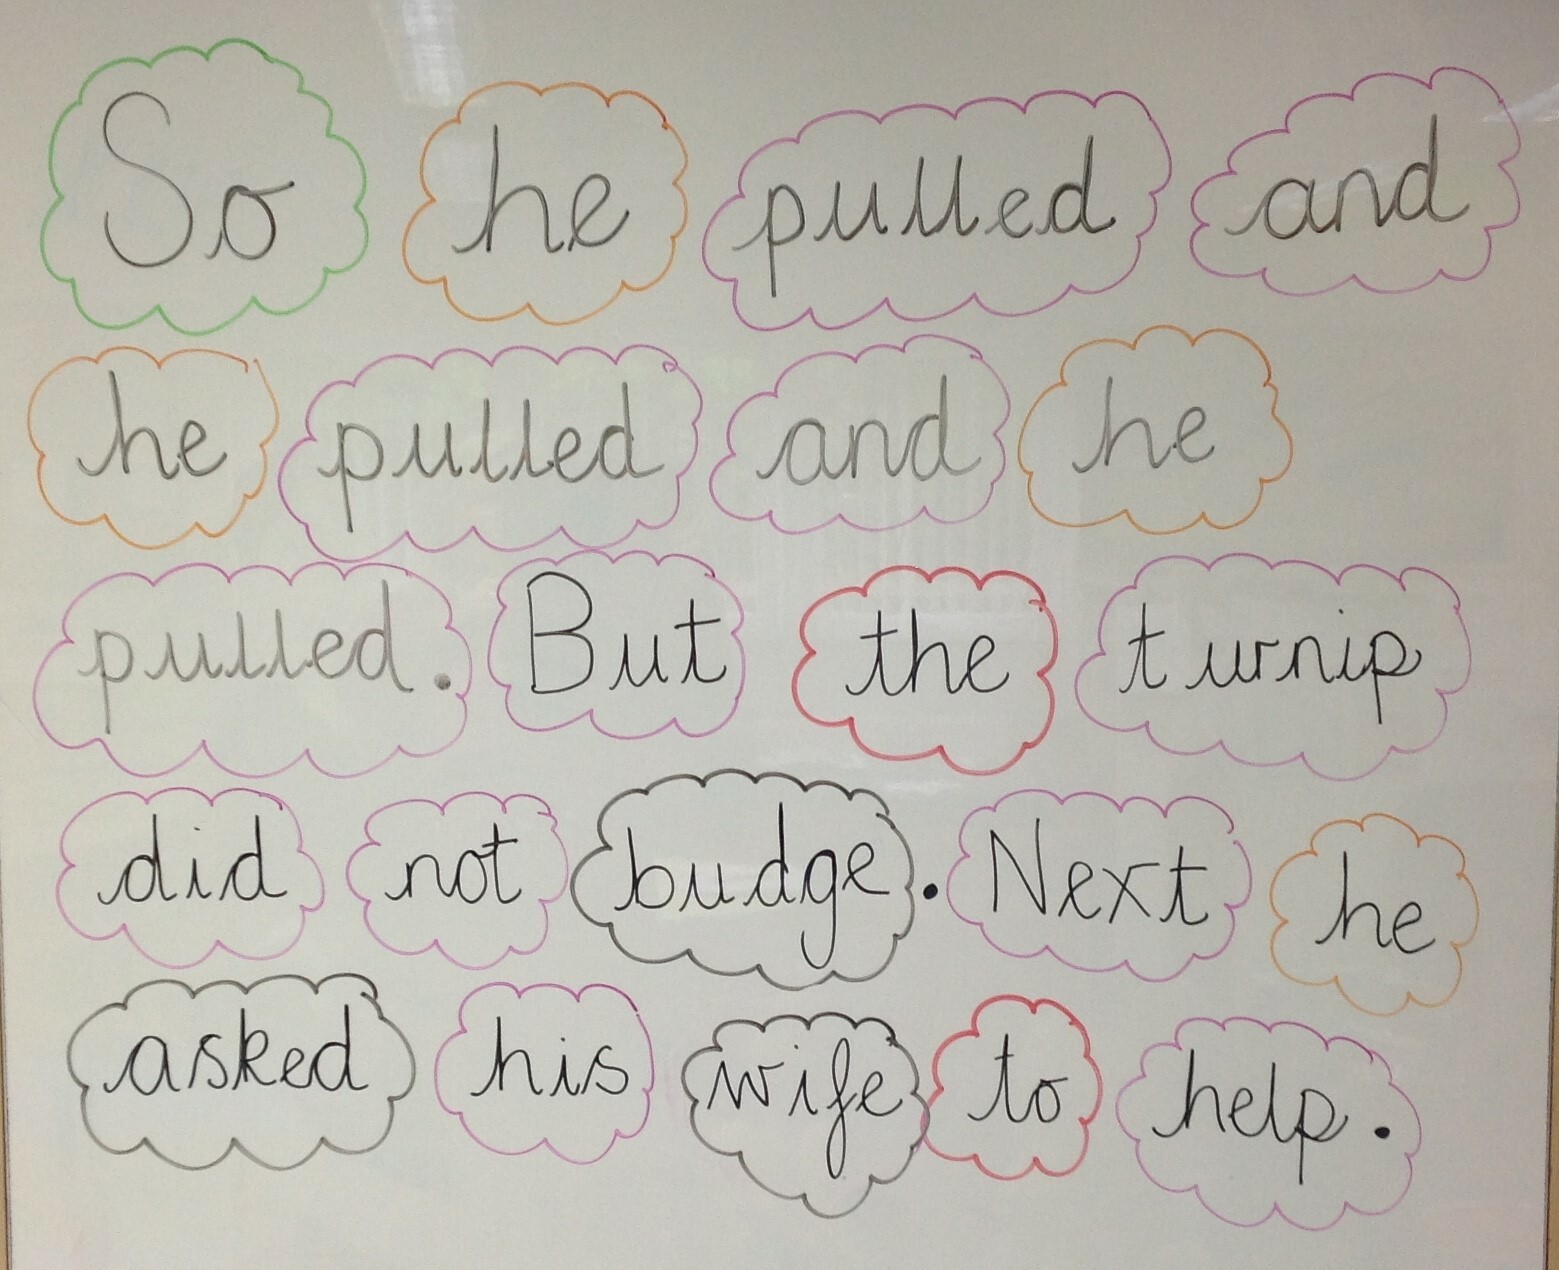 So he pulled and
he pulled and he
pulled. But the turnip
did not budge. Next he
asked his wife to help.